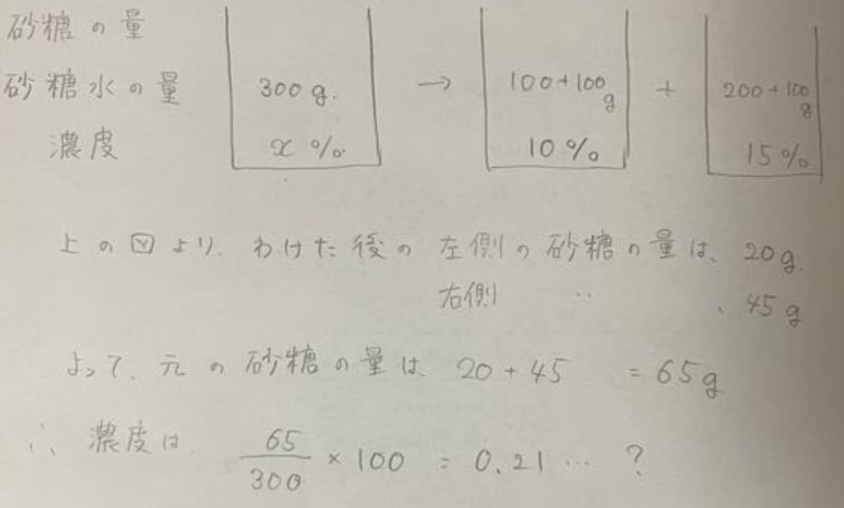 砂糖の量
砂糖水の量 300g. → 100+100g + 200+100g
濃度 x% 10% 15%
上の図より、わけた後の左側の砂糖の量は、20g.
右側 〃 、45g
よって、元の砂糖の量は、20+45 =65g
∴ 濃度は 65/300 × 100 = 0.21… ?